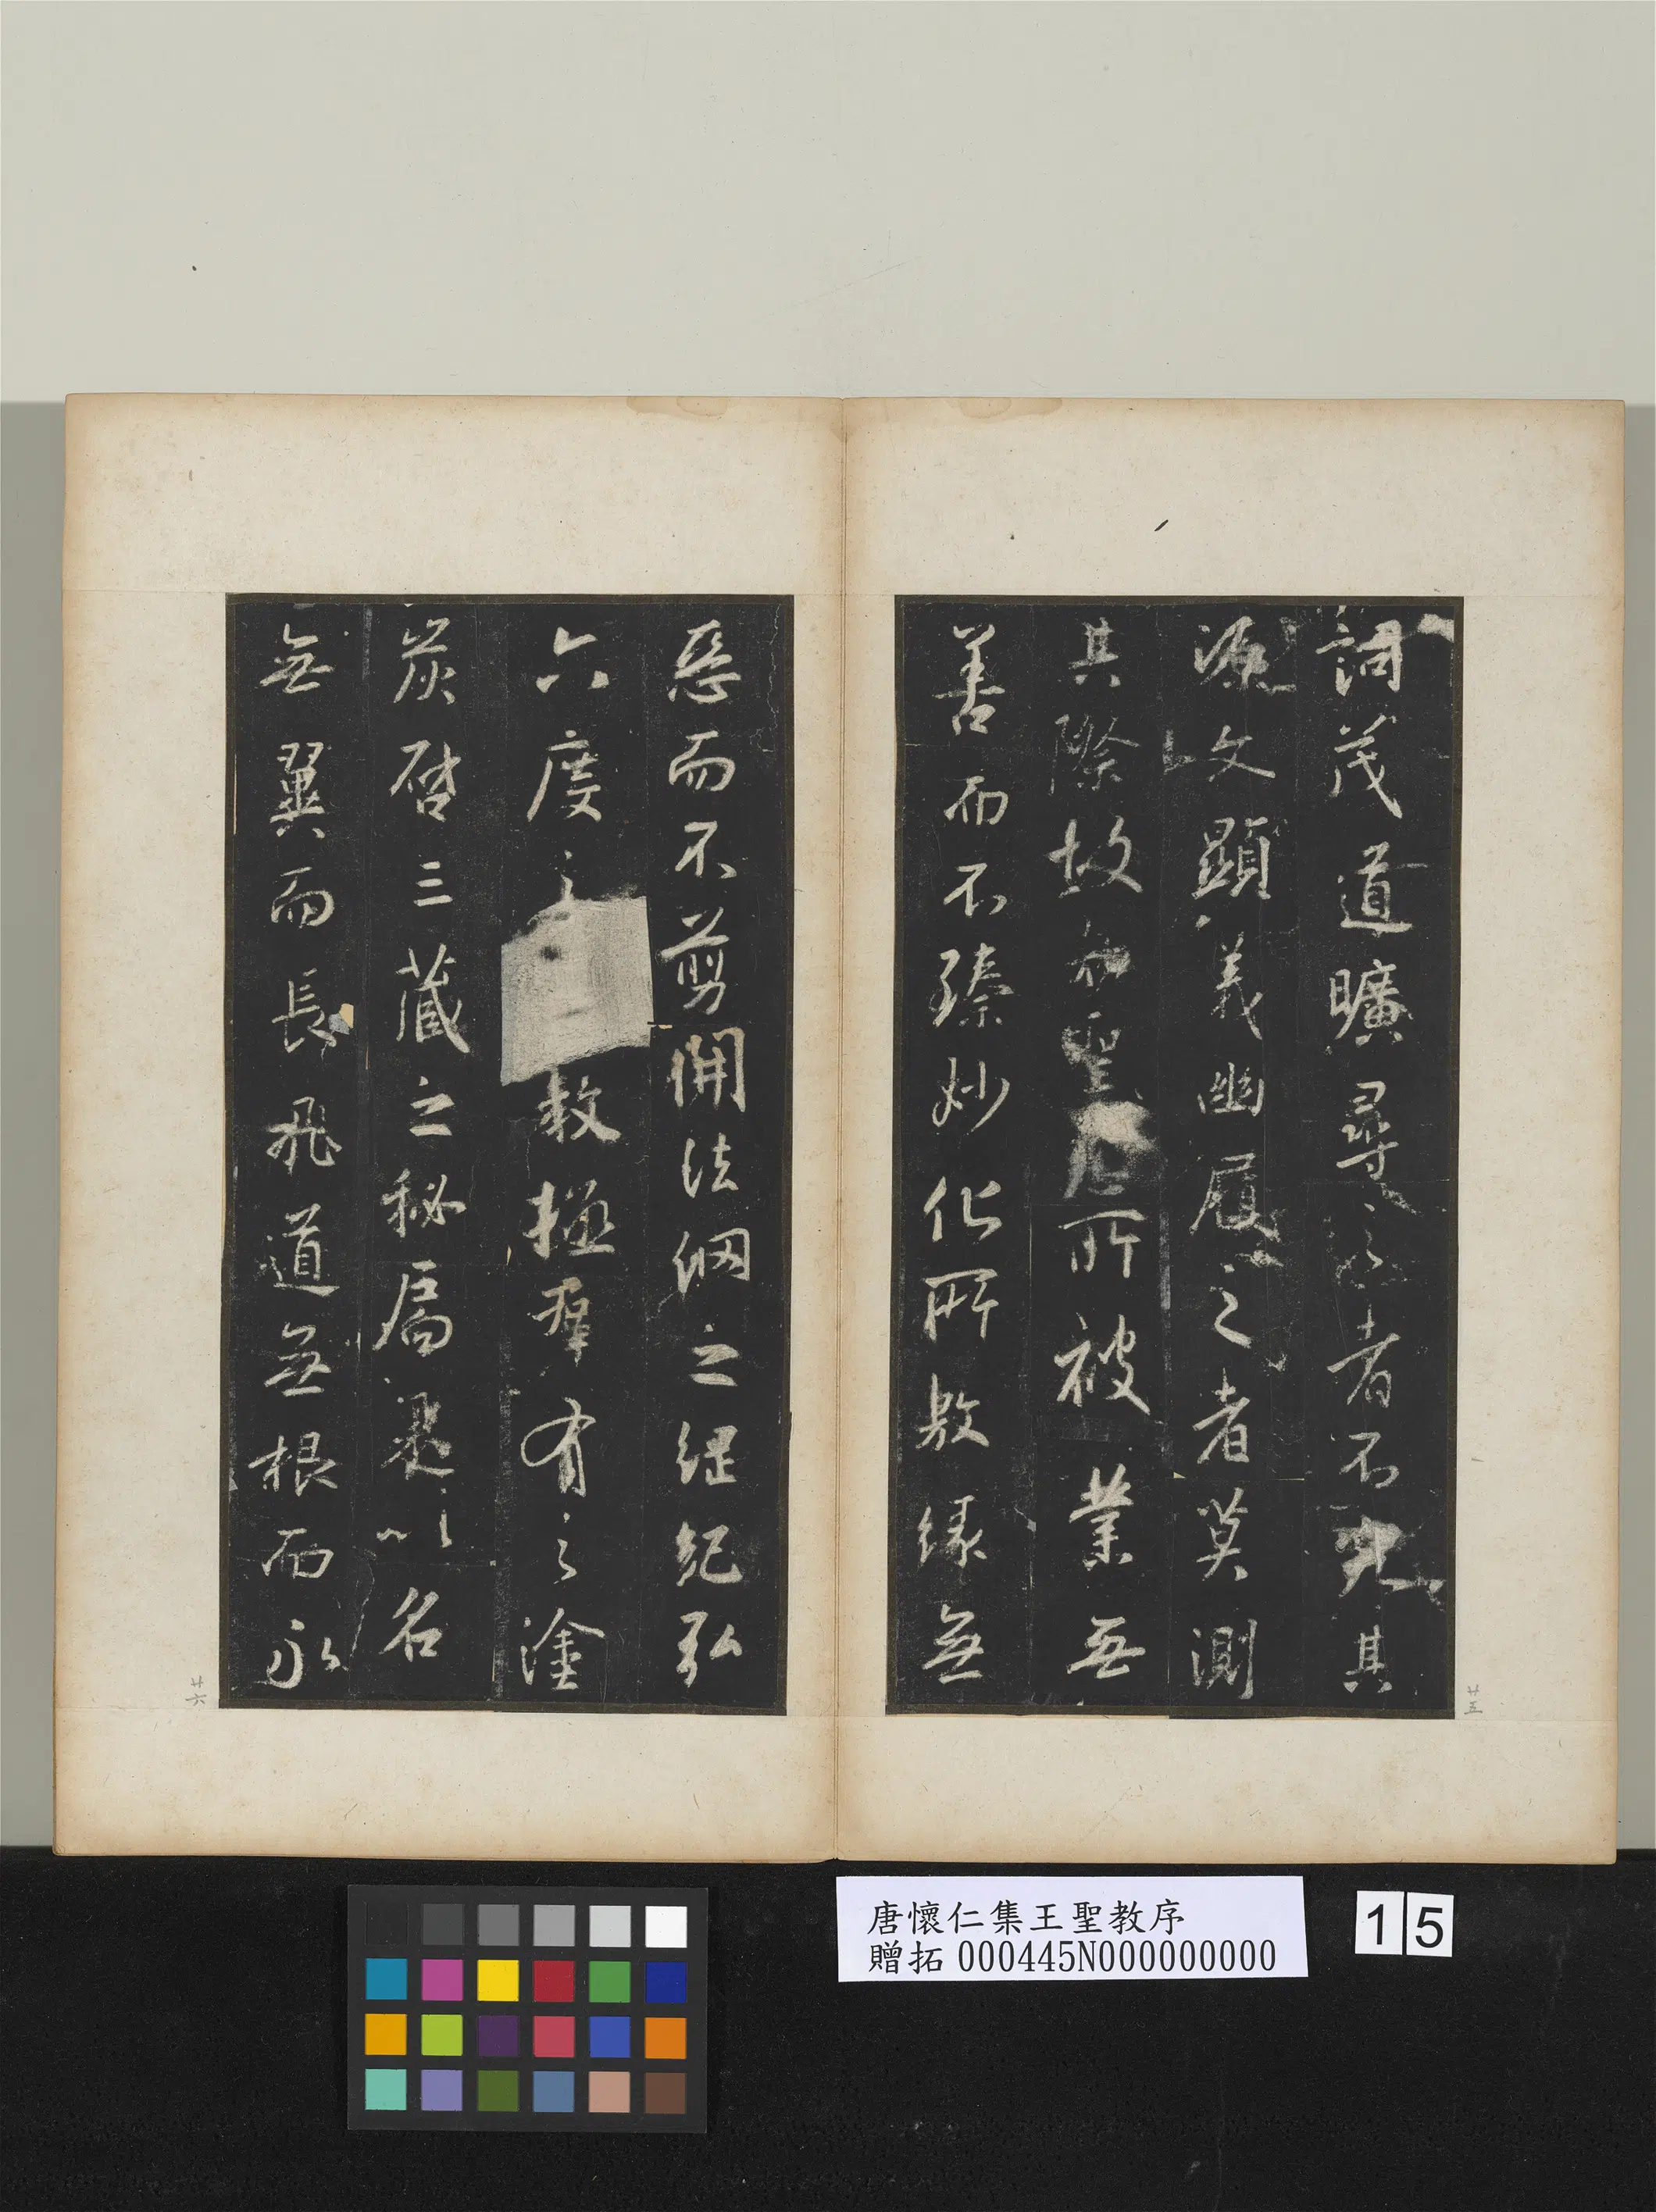 詞茂道曠尋之者不究其
源文顯義幽履之者莫測
其際故知聖慈所被業無
善而不臻妙化所敷緣無
惡而不剪開法網之綱紀弘
六度之教拯群有之塗
炭啓三藏之秘扃是以名
無翼而長飛道無根而永
廿五
廿六
唐懷仁集王聖教序
贈拓 000445N000000000
15